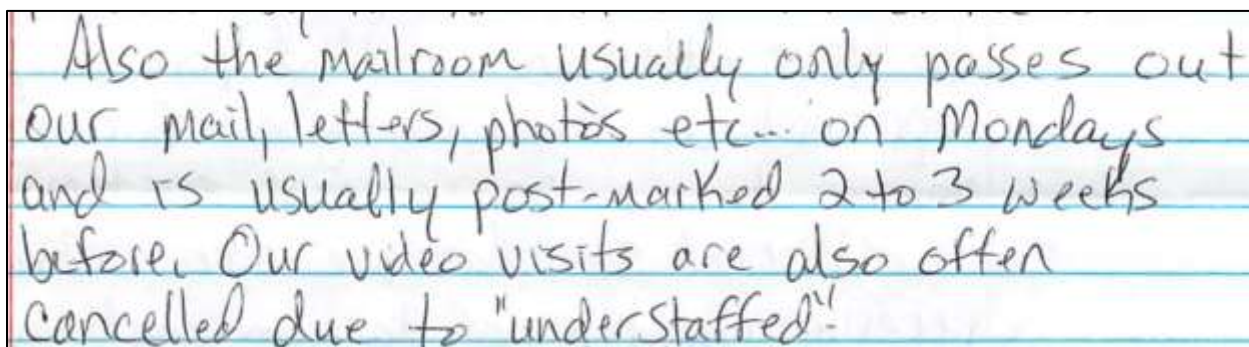 Also the mailroom usually only passes out
our mail, letters, photos etc... on Mondays
and is usually post-marked 2 to 3 weeks
before. Our video visits are also often
cancelled due to "understaffed".